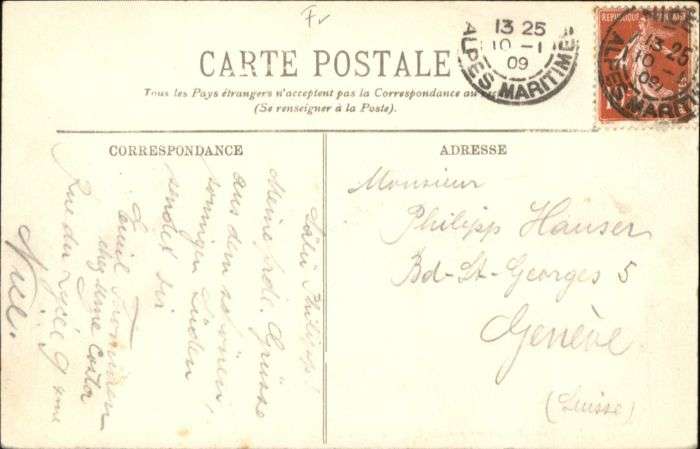 Fr
CARTE POSTALE
Tous les Pays étrangers n'acceptent pas la Correspondance au
(Se renseigner à la Poste).
13 25
10 - 1
09
ALPES MARITIMES
REPUBLIQUE FRANÇAISE
13 25
10 - 1
09
ALPES MARITIMES
CORRESPONDANCE
ADRESSE
Monsieur
Philipp Hauser
Bd-St-Georges 5
Genève
(Suisse)
Philipp!
Meine Grüsse
aus dem schönen,
sonnigen Süden
sendet dir
Emil
chez Mme Costa
Rue du Lycée 9
Nice.